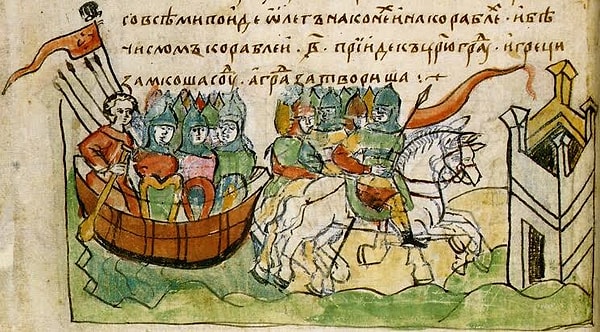 со всѣми поиде ѡлегъ на конех и на корабле · и бѣ
числомъ кораблеи · ҂в · прїиде къ црюграⷣ · и греци
замкоша соуⷣ · а граⷣ затвориша :